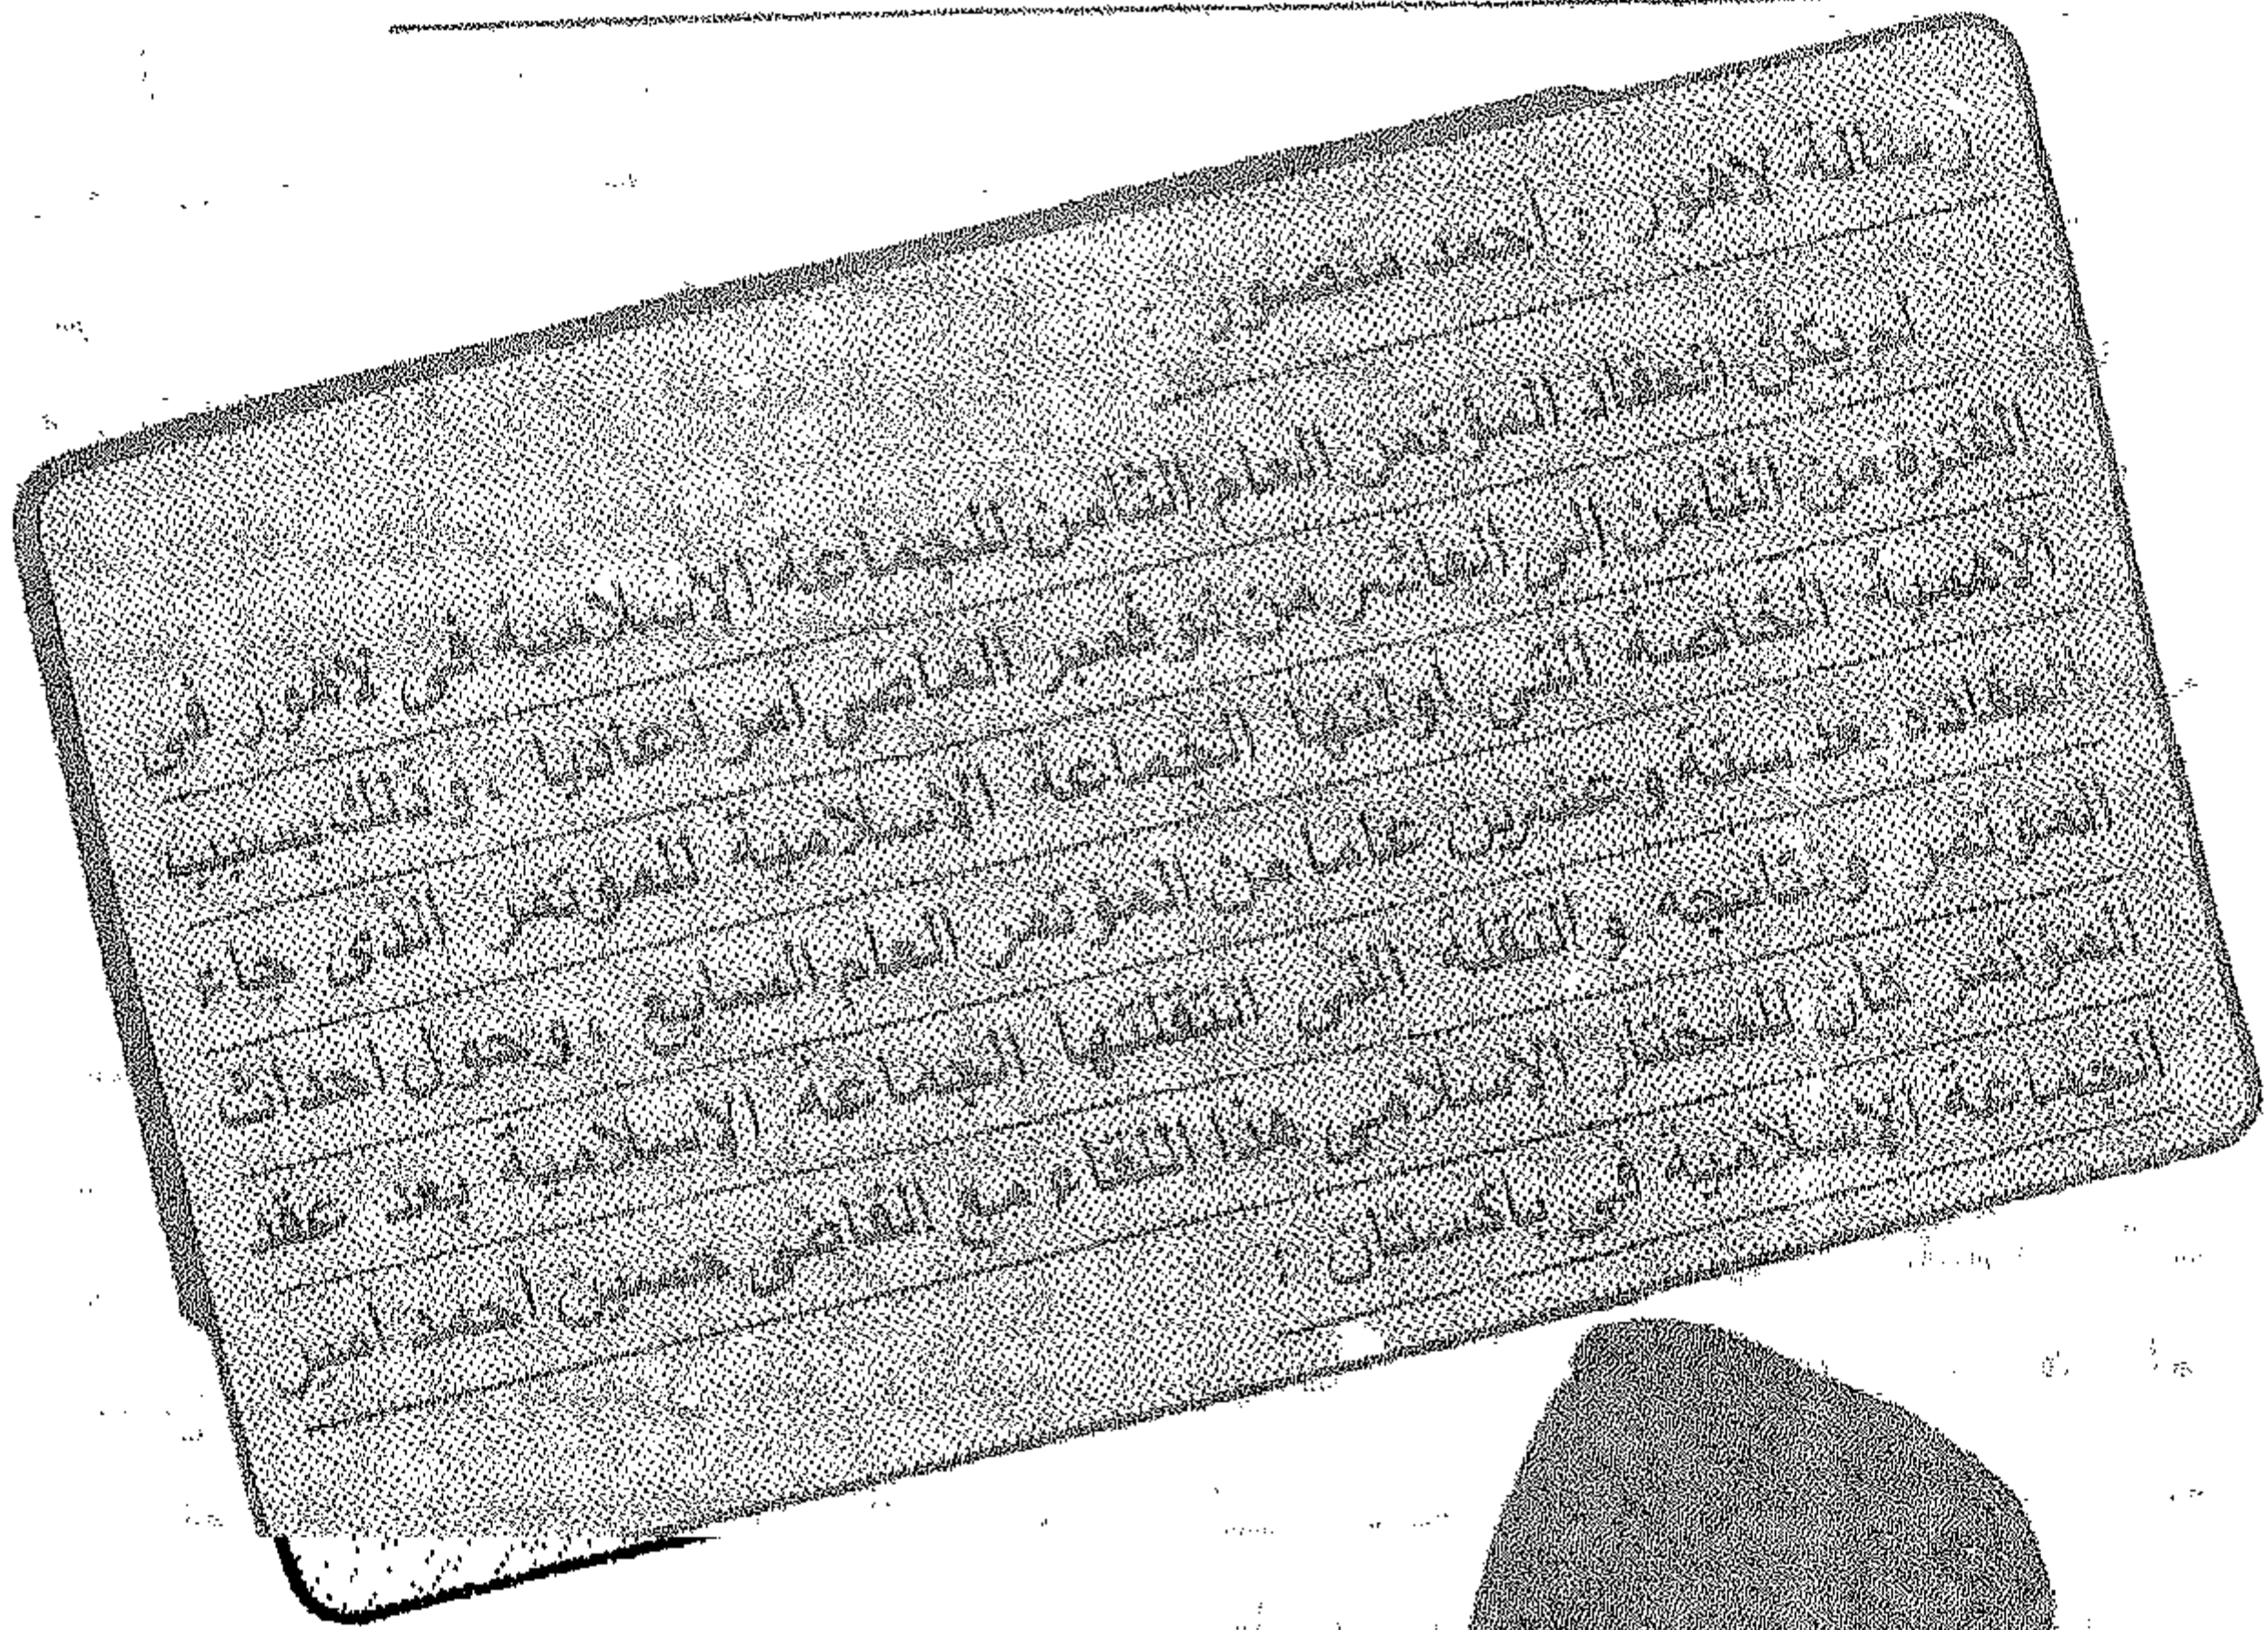 رسالة لاهور - أحمد منصور :
لم يكن انعقاد المؤتمر العام الثامن للجماعة الإسلامية في لاهور في
الفترة من الثامن إلى العاشر من نوفمبر الماضي أمرا عاديا . وذلك بسبب
الأهمية الخاصة التي أولتها الجماعة الإسلامية للمؤتمر الذي جاء
انعقاده بعد ستة وعشرين عاما من المؤتمر العام السابع . وحول أحداث
المؤتمر ونتائجه والنقلة التي انتقلتها الجماعة الإسلامية بعد عقد
المؤتمر كان للمختار الإسلامي هذا اللقاء مع القاضي حسين أحمد أمير
الجماعة الإسلامية في باكستان :